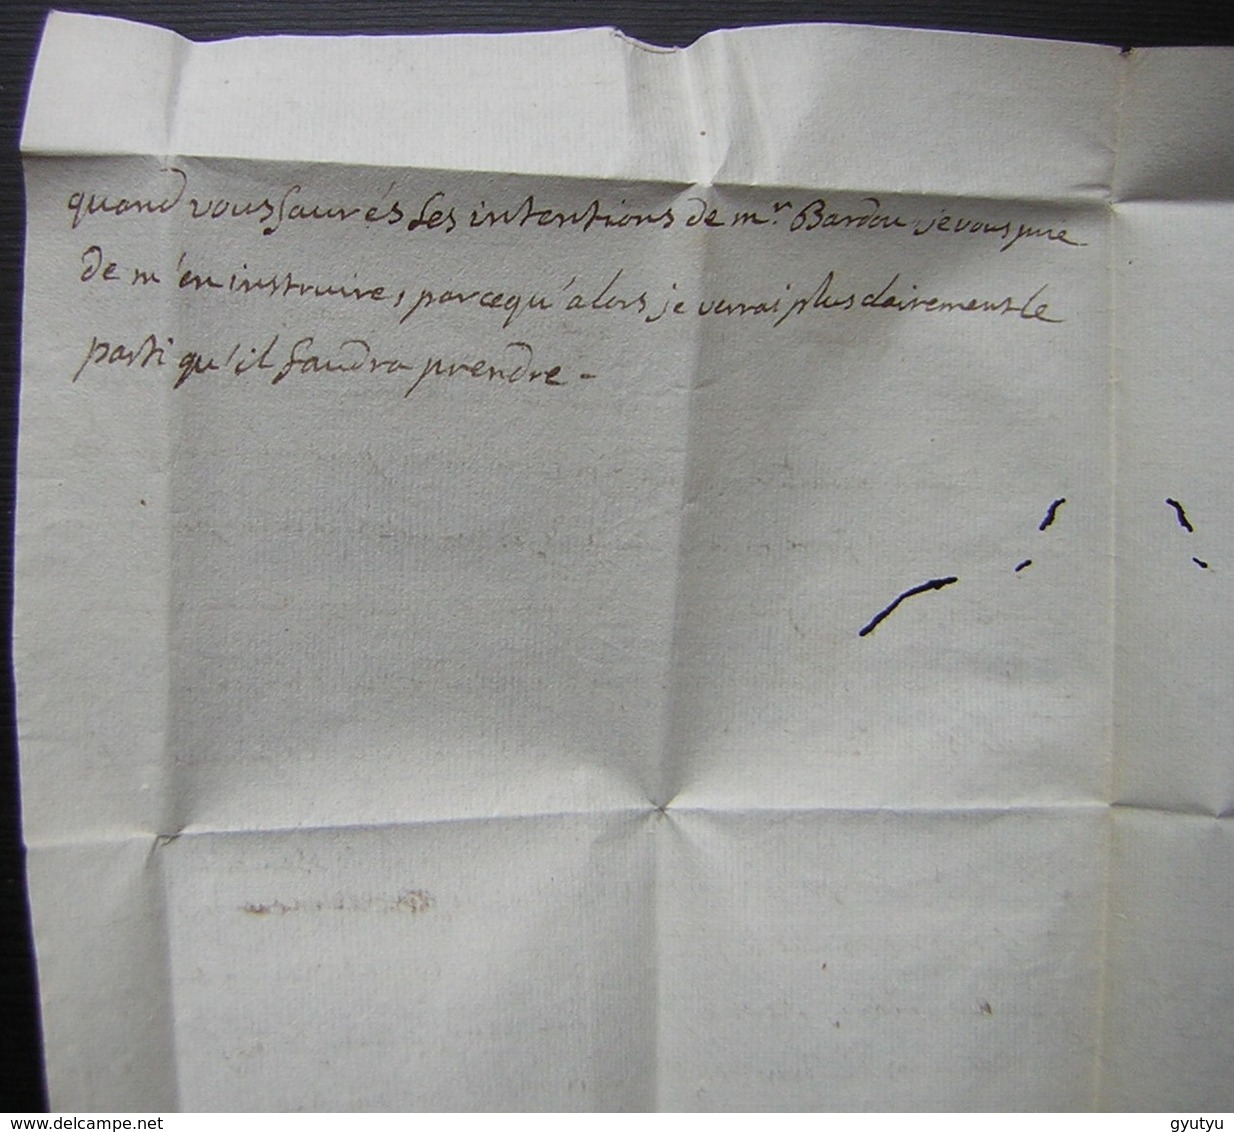 quand vous saurés les intentions de mr. Bardou je vous prie
de m'en instruire, parcequ'alors je verrai plus clairement le
parti qu'il faudra prendre -
delcampe.net
gyutyu